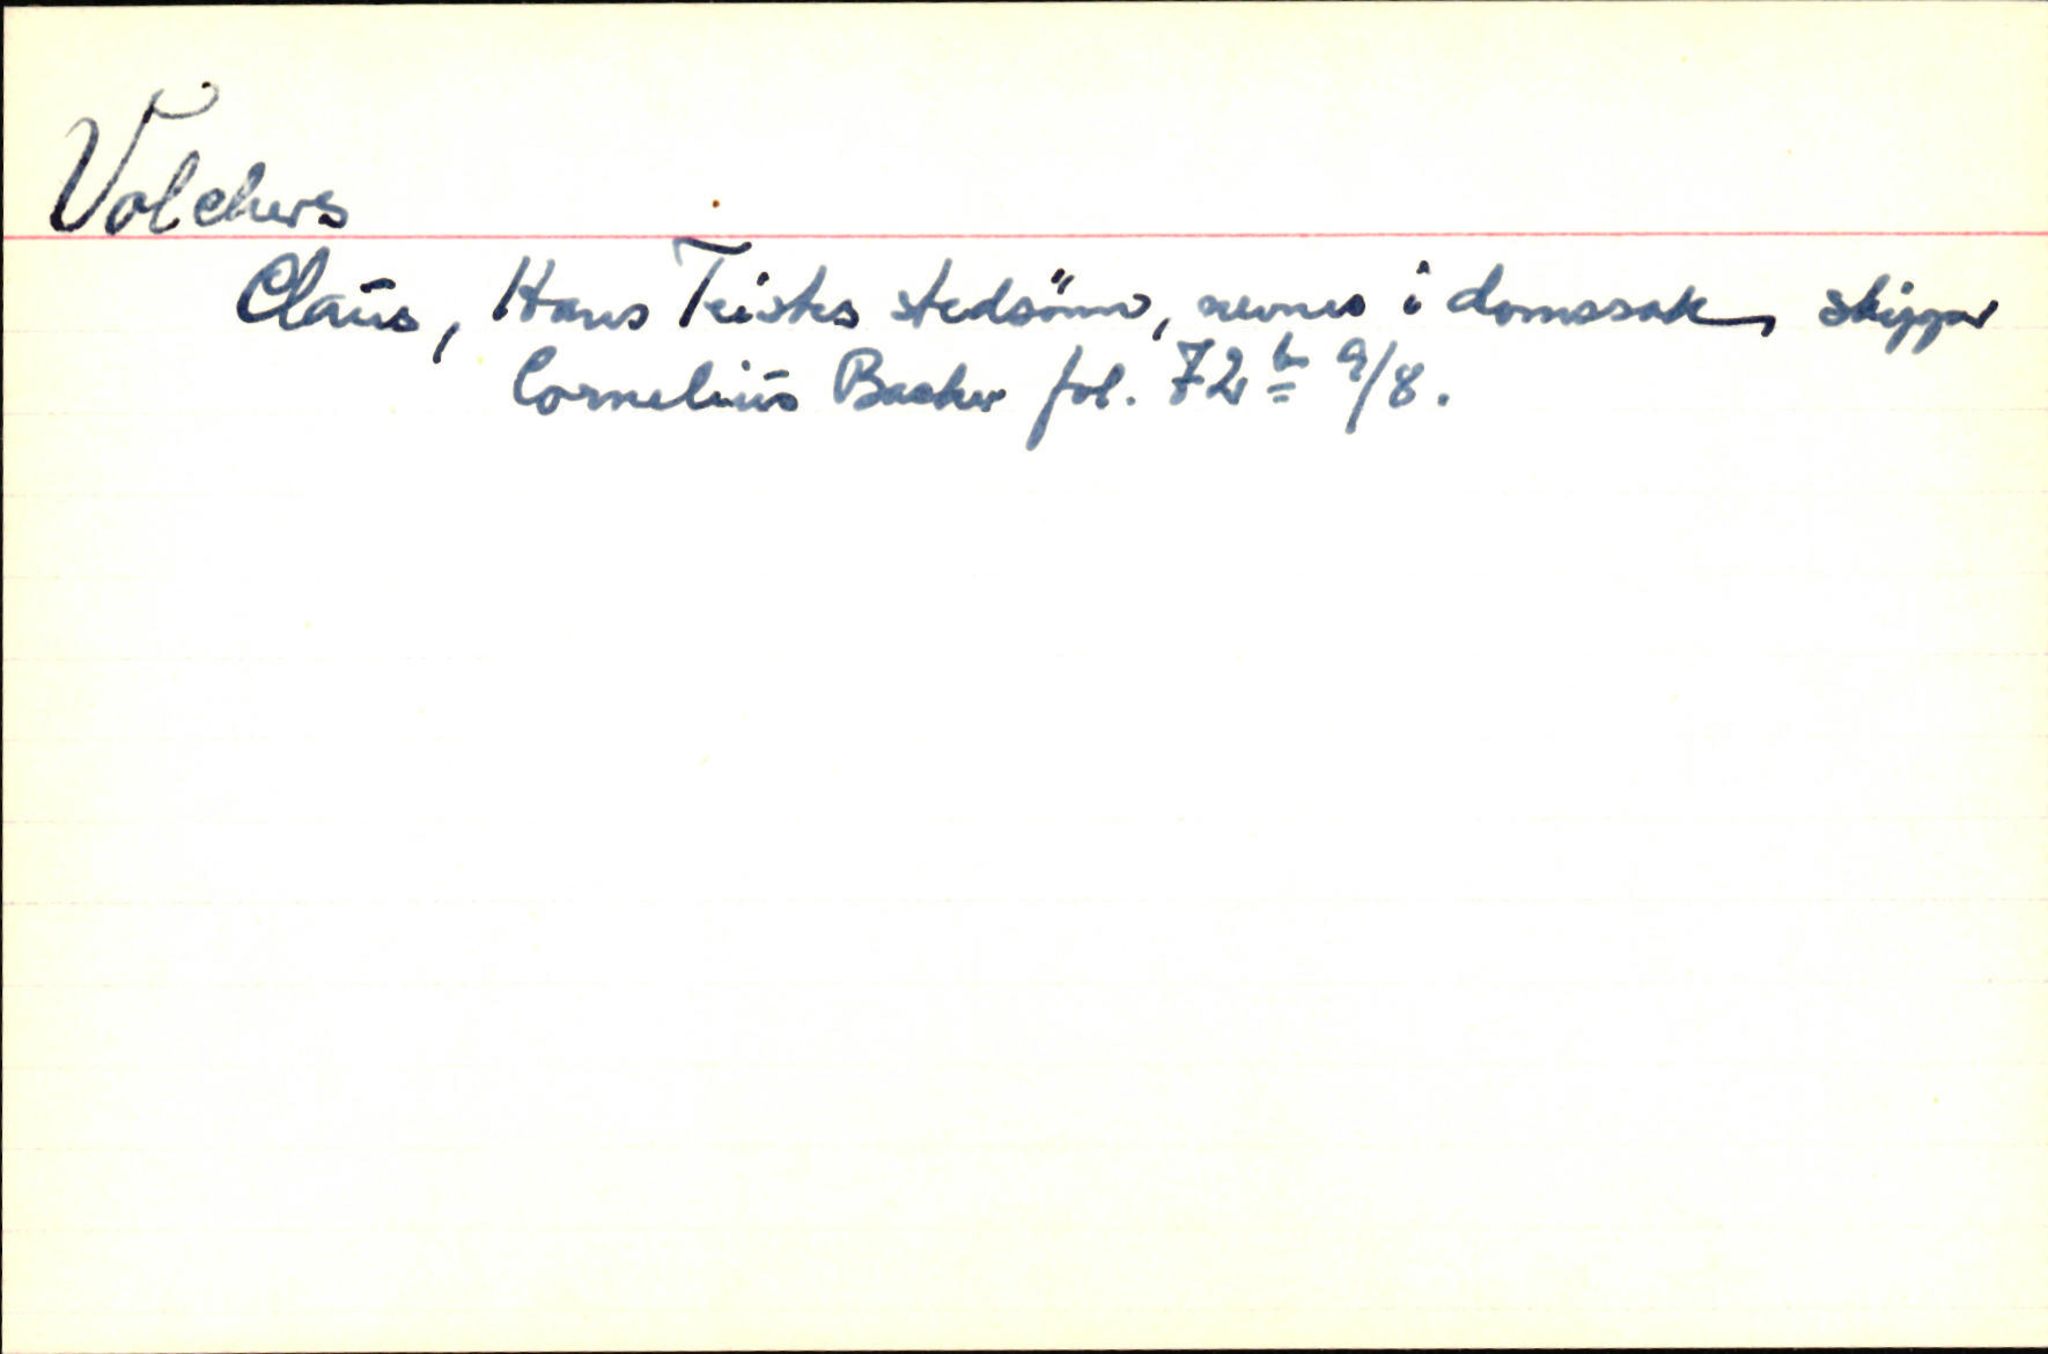 Volchers
Claūs, Hans Teistes stedsönn, nevnes i domssak, skipper
Corneliūs Backer fol. 72b 9/8.